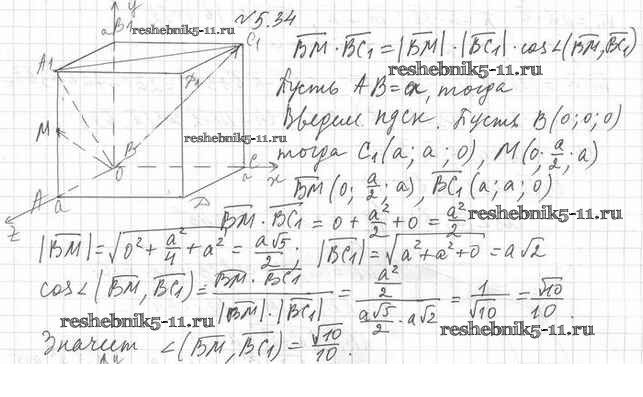 №5.34
y
a B1
reshebnik5-11.ru
C1
A1
D1
M
reshebnik5-11.ru
B
O
C
a
x
A
a
D
z
BM · BC1 = |BM| · |BC1| · cos∠(BM, BC1)
reshebnik5-11.ru
Пусть AB = a, тогда
Введем пдск. Пусть B(0; 0; 0)
тогда C1(a; a; 0), M(0; a/2; a)
BM(0; a/2; a), BC1(a; a; 0)
BM · BC1 = 0 + a²/2 + 0 = a²/2
reshebnik5-11.ru
|BM| = √(0² + a²/4 + a²) = a√5/2; |BC1| = √(a² + a² + 0) = a√2
cos∠(BM, BC1) = BM · BC1 / |BM| · |BC1| = a²/2 / a√5/2 · a√2 = 1/√10 = √10/10.
reshebnik5-11.ru
reshebnik5-11.ru
Значит ∠(BM, BC1) = √10/10.